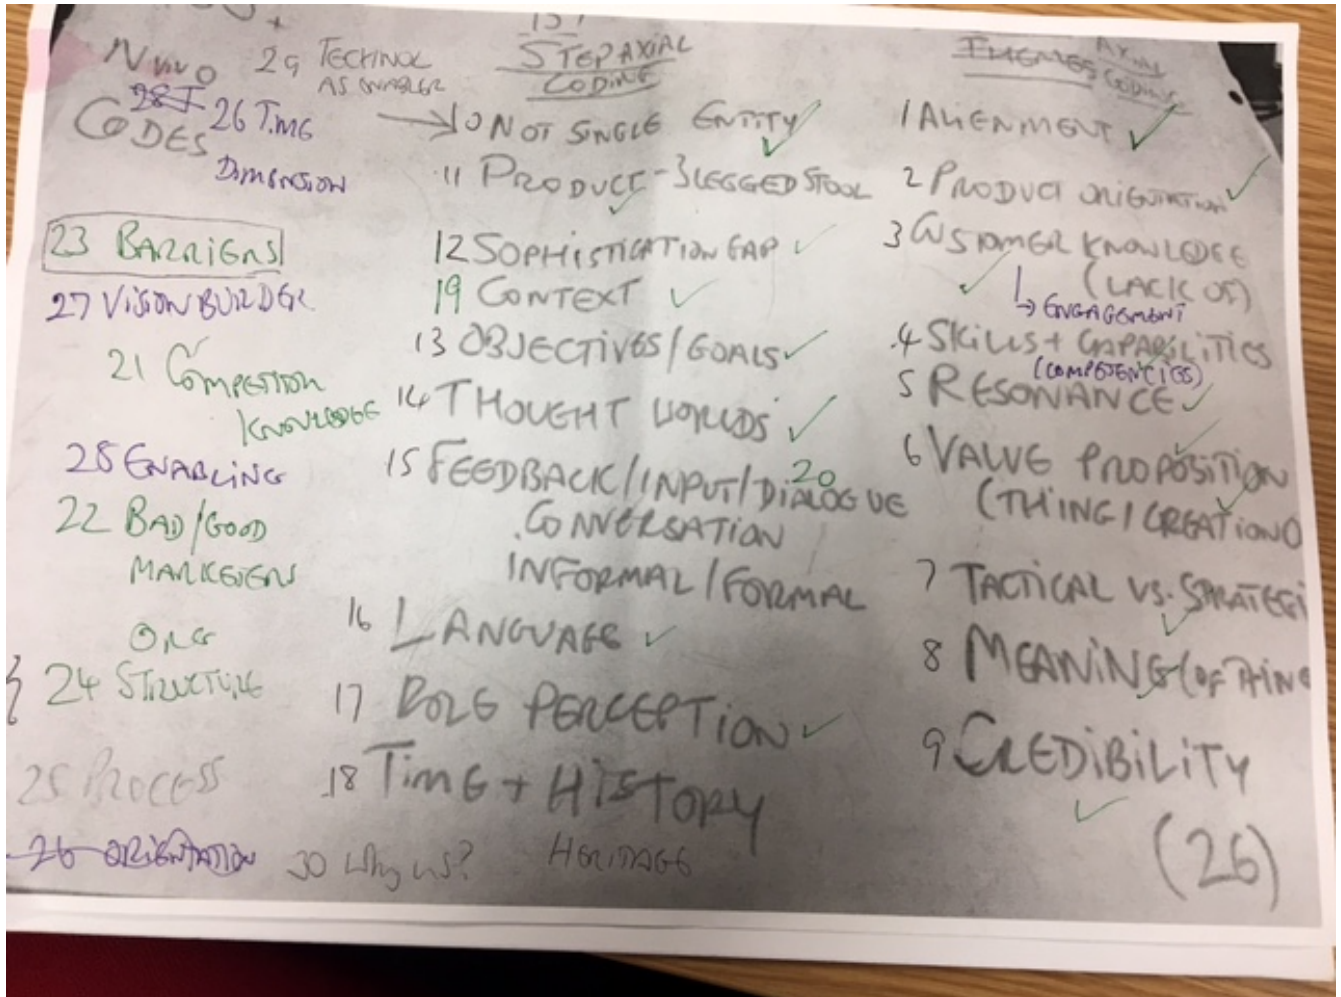 NVivO
CODES
28 I
29 TECHNOL
AS ENABLER
26 TiMG
DIMENSION
23 BARRIERS
27 VISION BUILDER
21 COMPETITION
KNOWLEDGE
28 ENABLING
22 BAD/GOOD
MARKETERS
ORG
24 STRUCTURE
25 PROCESS
26 ORIENTATION
1ST
STEP AXIAL
CODING
10 NOT SINGLE ENTITY
11 PRODUCT - 3 LEGGED STOOL
12 SOPHISTICATION GAP
19 CONTEXT
13 OBJECTIVES/GOALS
14 THOUGHT WORLDS
15 FEEDBACK/INPUT/DIALOGUE
20
CONVERSATION
INFORMAL/FORMAL
16 LANGUAGE
17 ROLE PERCEPTION
18 TiMG + HiSTORY
30 Why us?
HERITAGE
THEMES
AXIAL
CODING
1 ALIENMENT
2 PRODUCT ORIENTATION
3 CUSTOMER KNOWLEDGE
(LACK OF)
↳ ENGAGEMENT
4 SKILLS + CAPABILITIES
(COMPETENCIES)
5 RESONANCE
6 VALUE PROPOSITION
(THING/CREATION)
7 TACTICAL VS. STRATEGI
8 MEANING (OF THING
9 CREDIBILITY
(26)